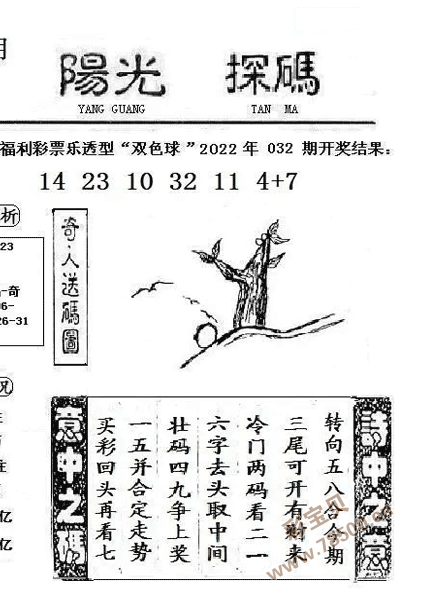 陽光 探碼
YANG GUANG TAN MA
福利彩票乐透型“双色球”2022年 032 期开奖结果:
14 23 10 32 11 4+7
析
23
奇
26-31
奇·人送碼圖
况
詩中之意
转向五八合今期
三尾可开有财来
冷门两码看二一
六字去头取中间
壮码四九争上奖
一五并合定走势
买彩回头再看七
意中之碼
亿
亿
彩宝贝